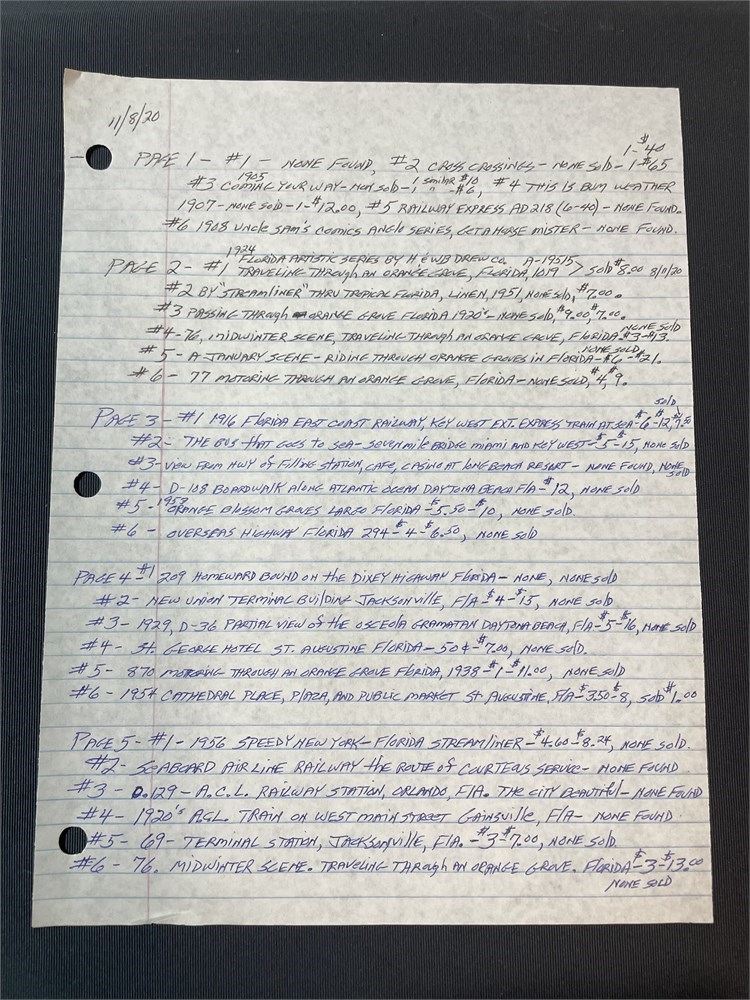 11/8/20
1-$40
PAGE 1 - #1 - NONE FOUND, #2 CROSS CROSSINGS - NONE Sold - 1-$65
1905 1 similar $10
#3 COMING YOUR WAY - NON Sold - 1 " " $6, #4 THIS IS BUM WEATHER
1907 - NONE Sold - 1 - $12.00, #5 RAILWAY EXPRESS AD 218 (6-40) - NONE FOUND.
#6 1908 UNCLE SAM'S COMICS ANGLE SERIES, GET A HORSE MISTER - NONE FOUND.
1924 FLORIDA ARTISTIC SERIES BY H & WB DREW CO. A-19515
PAGE 2 - #1 TRAVELING THROUGH AN ORANGE GROVE, FLORIDA, 1019 > Sold $8.00 8/11/20
#2 BY "STREAMLINER" THRU TROPICAL FLORIDA, LINEN, 1951, NONE Sold, $7.00.
#3 PASSING THROUGH ORANGE GROVE FLORIDA 1920's - NONE Sold, $9.00, $7.00.
NONE Sold
#4 - 76, MIDWINTER SCENE, TRAVELING THROUGH AN ORANGE GROVE, FLORIDA - $3 - $13.
NONE Sold
#5 - A JANUARY SCENE - RIDING THROUGH ORANGE GROVES IN FLORIDA - $6 - $21.
#6 - 77 MOTORING THROUGH AN ORANGE GROVE, FLORIDA - NONE Sold, $4, $9.
Sold
PAGE 3 - #1 1916 FLORIDA EAST COAST RAILWAY, KEY WEST EXT. EXPRESS TRAIN AT SEA - $6 - $12, $7.50
#2 - THE BUS THAT GOES TO SEA - SEVEN MILE BRIDGE MIAMI AND KEY WEST - $5 - $15, NONE Sold
#3 - VIEW FROM HWY OF FILLING STATION, CAFE, CASINO AT LONG BEACH RESORT - NONE FOUND, NONE
Sold
#4 - D-108 BOARDWALK ALONG ATLANTIC OCEAN DAYTONA BEACH FlA - $12, NONE Sold
1959
#5 - ORANGE BLOSSOM GROVES LARGO FLORIDA - $5.50 - $10, NONE Sold
#6 - OVERSEAS HIGHWAY FLORIDA 294 - $4 - $6.50, NONE Sold
PAGE 4 - #1 209 HOMEWARD BOUND ON THE DIXEY HIGHWAY FLORIDA - NONE, NONE Sold
#2 - NEW UNION TERMINAL BUILDING JACKSONVILLE, FlA $4 - $15, NONE Sold
#3 - 1929, D-36 PARTIAL VIEW OF THE OSCEOLA GRAMATAN DAYTONA BEACH, FlA - $5 - $16, NONE Sold
#4 - ST. GEORGE HOTEL ST. AUGUSTINE FLORIDA - 50¢ - $7.00, NONE Sold.
#5 - 870 MOTORING THROUGH AN ORANGE GROVE FLORIDA, 1938 - $1 - $11.00, NONE Sold
#6 - 1954 CATHEDRAL PLACE, PLAZA, AND PUBLIC MARKET ST AUGUSTINE, FlA - $3.50 - $8, Sold $1.00
PAGE 5 - #1 - 1956 SPEEDY NEW YORK - FLORIDA STREAMLINER - $4.60 - $8.24, NONE Sold.
#2 - SEABOARD AIR LINE RAILWAY THE ROUTE OF COURTEOUS SERVICE - NONE FOUND
#3 - D.129 - A.C.L. RAILWAY STATION, ORLANDO, FlA. THE CITY BEAUTIFUL - NONE FOUND
#4 - 1920's A.C.L. TRAIN ON WEST MAIN STREET GAINSVILLE, FlA - NONE FOUND
#5 - 69 - TERMINAL STATION, JACKSONVILLE, FlA. - $3 - $7.00, NONE Sold.
#6 - 76. MIDWINTER SCENE. TRAVELING THROUGH AN ORANGE GROVE. FLORIDA - $3 - $13.00
NONE SOLD